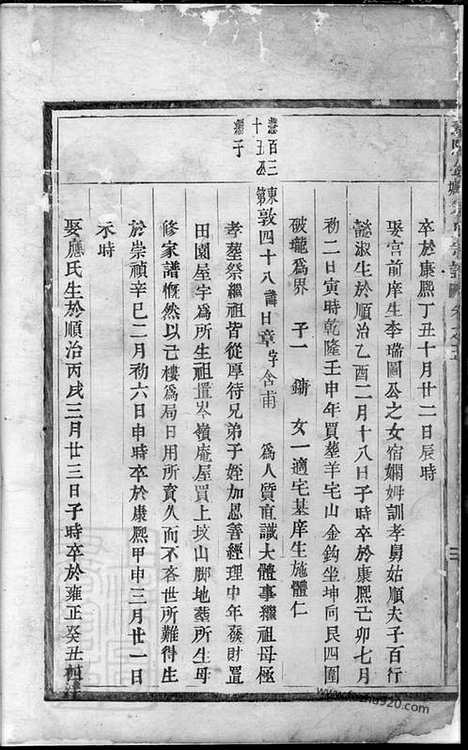 卒於康熙丁丑十月廿二日辰時
娶宮前庠生李瑞圖公之女宿嫻姆訓孝舅姑順夫子百行
懿淑生於順治乙酉二月十八日子時卒於康熙己卯七月
初二日寅時乾隆壬申年買塟羊宅山金鈎坐坤向艮四圍
破壠爲界 子一 鏘 女一適宅基庠生施體仁
惠百三十五
繼子
東第敦四十八諱日章字含甫 爲人質直識大體事繼祖母極
孝塟祭繼祖皆從厚待兄弟子姪加恩善經理中年發財置
田園屋宇爲所生祖置岑嶺庵屋買上坟山脚地塟所生母
修家譜慨然以己樓爲局日用所資久而不吝世所難得生
於崇禎辛巳二月初六日申時卒於康熙甲申三月廿一日
未時
娶應氏生於順治丙戌三月廿三日子時卒於雍正癸丑
三
www.fozhu920.com